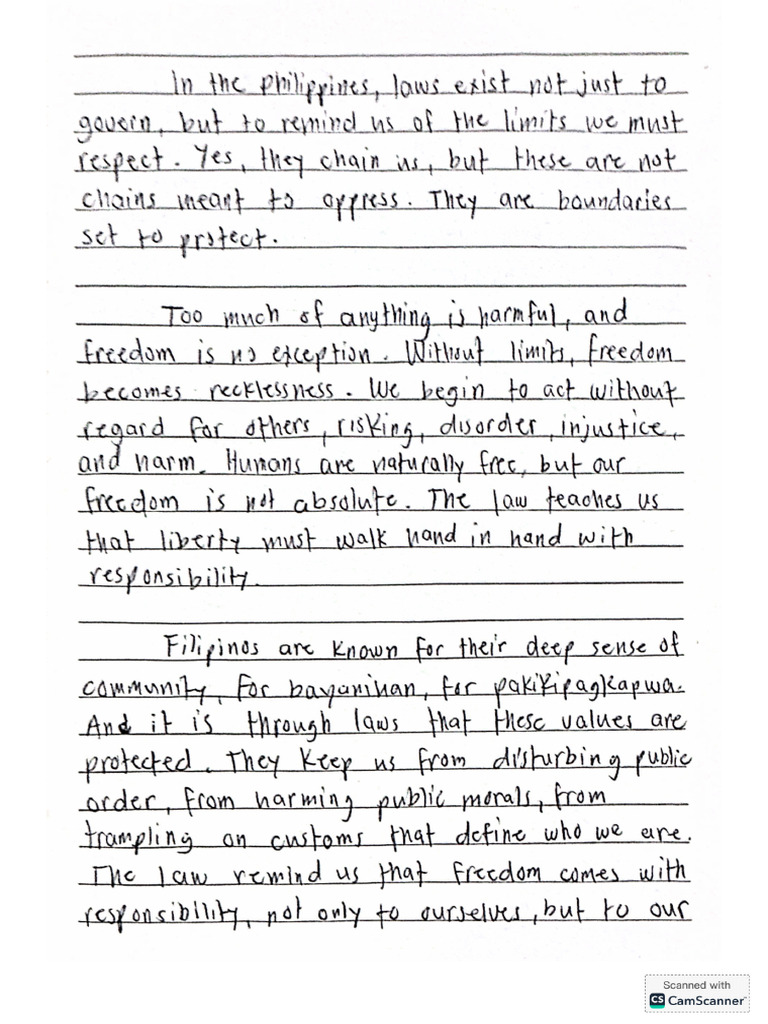 In the Philippines, laws exist not just to
govern, but to remind us of the limits we must
respect. Yes, they chain us, but these are not
chains meant to oppress. They are boundaries
set to protect.
Too much of anything is harmful, and
freedom is no exception. Without limits, freedom
becomes recklessness. We begin to act without
regard for others, risking, disorder, injustice,
and harm. Humans are naturally free, but our
freedom is not absolute. The law teaches us
that liberty must walk hand in hand with
responsibility.
Filipinos are known for their deep sense of
community, for bayanihan, for pakikipagkapwa.
And it is through laws that these values are
protected. They keep us from disturbing public
order, from harming public morals, from
trampling on customs that define who we are.
The law remind us that freedom comes with
responsibility, not only to ourselves, but to our
Scanned with
CS CamScanner